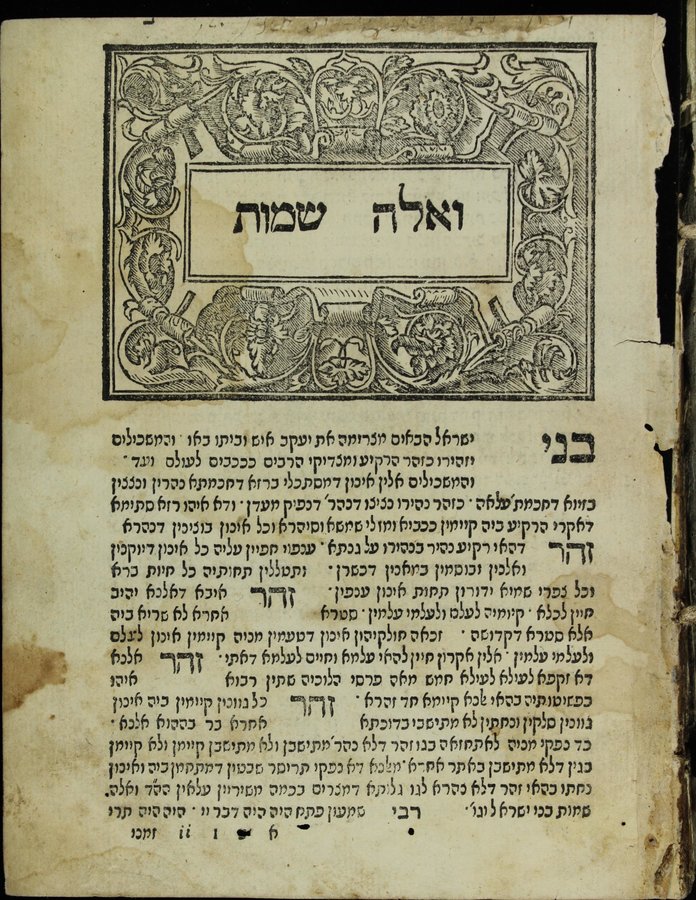 ואלה שמות
בני ישראל הבאים מצרימה את יעקב איש וביתו באו והמשכילים
יזהירו כזהר הרקיע ומצדיקי הרבים ככככים לעולם ועד
והמשכילים אלין אינון דמסתכלי ברזא דחכמתא נהרין ונצצין
בזיווא דחכמת' עלאה כזהר נהירו נציצו דנהר' דנפיק מעדן ודא איהו רזא סתימא
דאקרי הרקיע ביה קיימין ככביא ומזלי שמשא וסיהרא וכל אינון בוצינין דנהרא
זהר דהאי רקיע נהיר בנהירו על גנתא ענפוי חפיין עליה כל אינון דיוקנין
ואלנין ובוסמין במאנין דכשרן ותטללין תחותיה כל חיות ברא
וכל צפרי שמיא ידורון תחות אינון ענפין זהר איבא דאלנא יהיב
חיין לכלא קיומיה לעלם ולעלמי עלמין סטרא אחרא לא שריא ביה
אלא סטרא דקדושה זכאה חולקיהון אינון דטעמין מניה קיימין אינון לעלם
ולעלמי עלמין אלין אקרון חיין להאי עלמא וחיים לעלמא דאתי זהר אלנא
דא זקפא לעילא לעילא חמש מאה פרסי הלוכיה שתין רבוא איהו
בפשיטותיה בהאי אלנא קיימא חד זהרא זהר כל גוונין קיימין ביה אינון
גוונין סלקין ונחתין לא מתישבי בדוכתא אחרא בר בההוא אלנא
כד נפקי מניה לאתחזאה בגו זהר דלא נהר מתישבן ולא מתישבן קיימן ולא קיימן
בגין דלא מתישבן באתר אחרא מאלנא דא נפקי תריסר שבטין דמתחמן ביה ואינון
נחתו בהאי זהר דלא נהרא לגו גלותא דמצרים בכמה משיריין עלאין הה"ד ואלה
שמות בני ישראל וגו' רבי שמעון פתח היה היה דבר יי' היה היה תרי
א 1 ii זמני